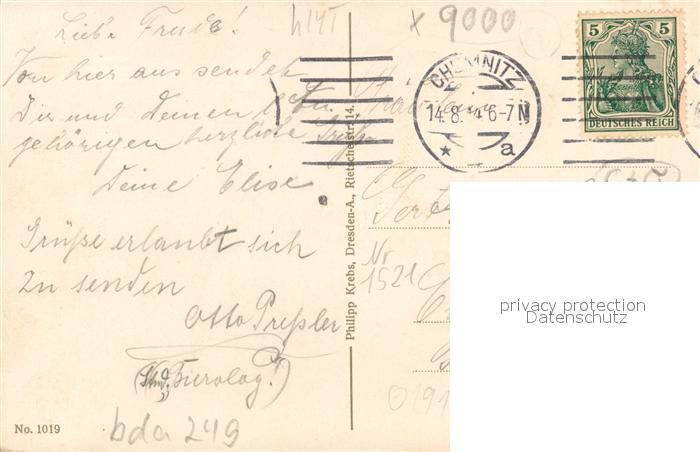 Liebe Freude!
Von hier aus sendet
Dir und Deinen
gehörigen herzliche Grüße
Deine Elise
Grüße erlaubt sich
zu senden
Otto Preßler
(Stud. Bierolog.!)
No. 1019
bda 249
h141
x 9000
Philipp Krebs, Dresden-A., Rietschelstr. 14.
CHEMNITZ
14.8.14 6-7N
* a
5 5
DEUTSCHES REICH
Nr
1521
privacy protection
Datenschutz